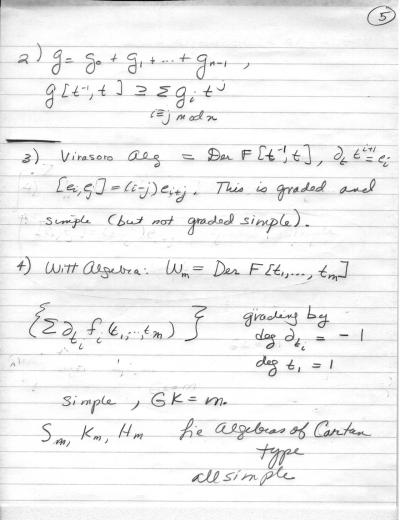 5
2) g = g₀ + g₁ + ... + gₙ₋₁ ,
g[t⁻¹, t] ⊇ Σ gᵢ tʲ
i≡j mod n
3) Virasoro Alg = Der F[t⁻¹, t], ∂ₜ tⁱ⁺¹ = eᵢ
[eᵢ, eⱼ] = (i-j) eᵢ₊ⱼ. This is graded and
simple (but not graded simple).
4) Witt Algebra: Wₘ = Der F[t₁, ..., tₘ]
{ Σ ∂ₜᵢ fᵢ (t₁, ..., tₘ) } grading by
deg ∂ₜᵢ = -1
deg t₁ = 1
simple, GK = m.
Sₘ, Kₘ, Hₘ Lie Algebras of Cartan
type
all simple